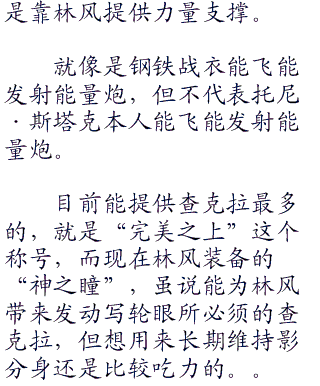 是靠林风提供力量支撑。
就像是钢铁战衣能飞能
发射能量炮，但不代表托尼
·斯塔克本人能飞能发射能
量炮。
目前能提供查克拉最多
的，就是“完美之上”这个
称号，而现在林风装备的
“神之瞳”，虽说能为林风
带来发动写轮眼所必须的查
克拉，但想用来长期维持影
分身还是比较吃力的。。